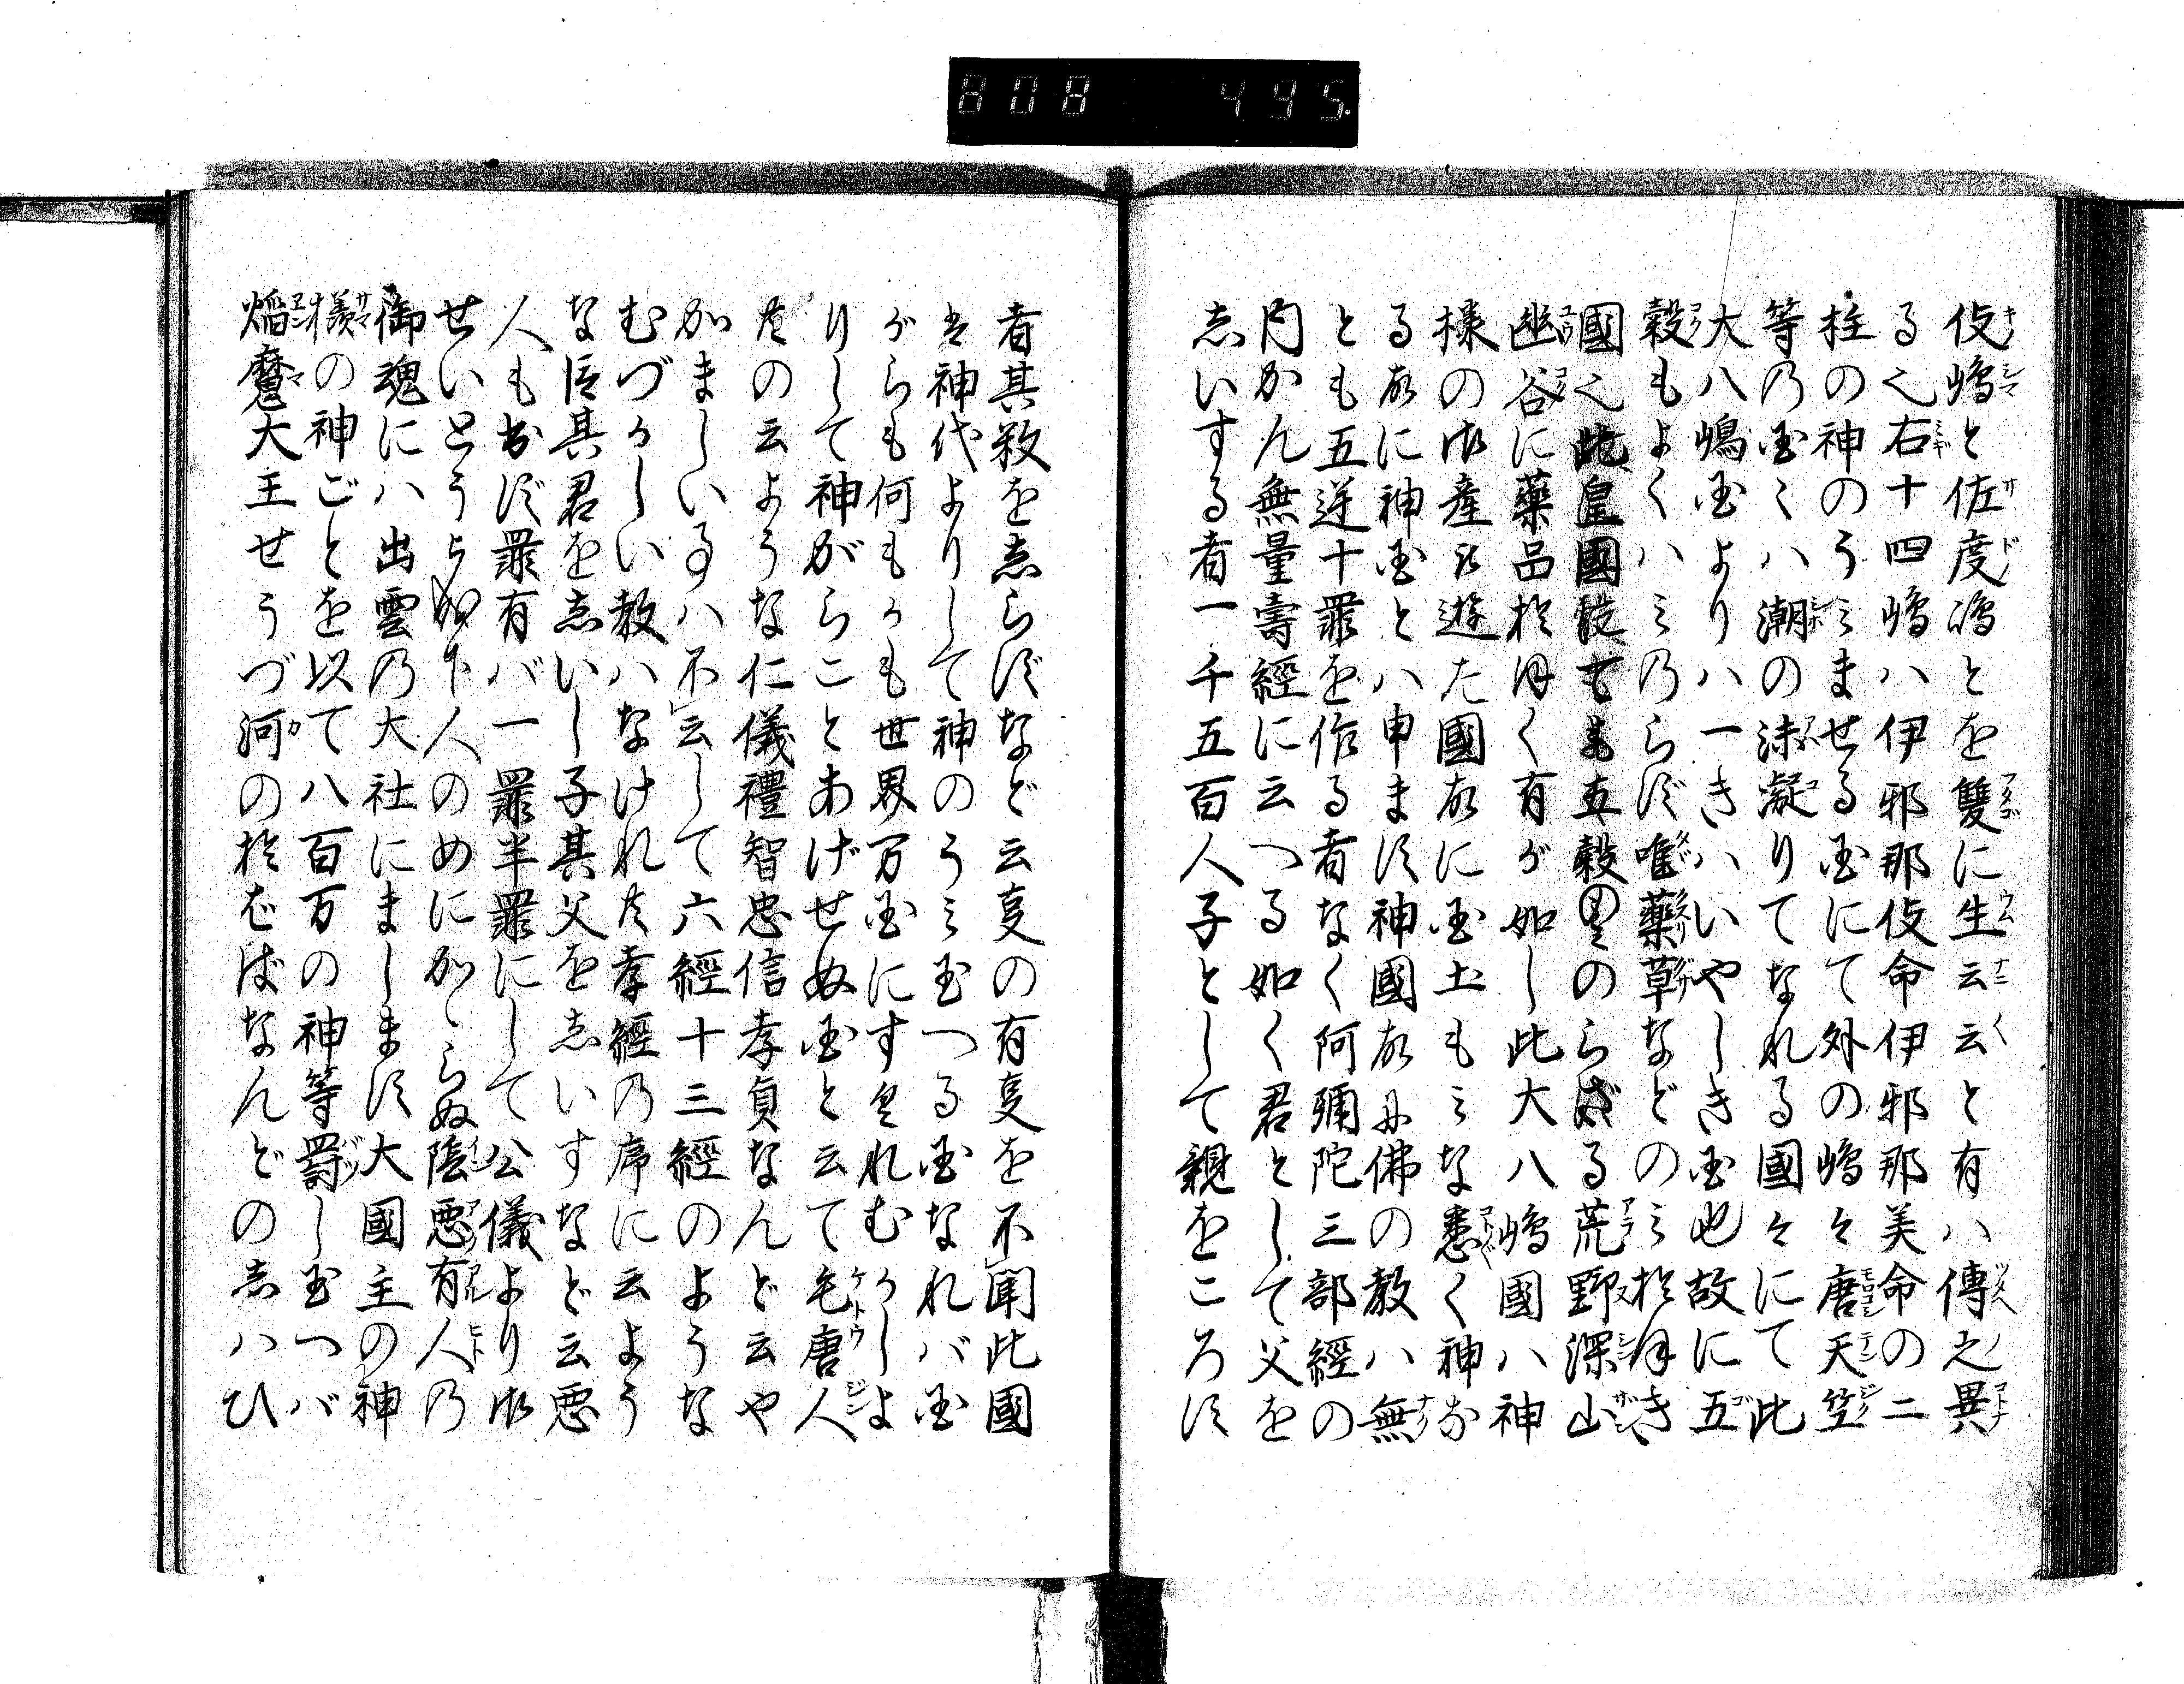 808 495.
伎嶋と佐度嶋とを雙に生云云と有ハ傳之異
る也右十四嶋ハ伊邪那伎命伊邪那美命の二
柱の神のうミませる国にて外の嶋々唐天笠
等乃国々ハ潮の沫凝りてなれる國々にて此
大八嶋国よりハ一きハいやしき国也故に五
穀もよくハミのらず唯藥草などのミおほき
國也此皇國にても五穀のミのらざる荒野深山
幽谷に藥品おほく有が如し此大八嶋國ハ神
様の御産被遊た國故に国土もミな悉く神な
る故に神国とハ申ます神國故に佛の教ハ無
とも五逆十罪を作る者なく阿彌陀三部經の
内かん無量壽經に云つる如く君として父を
志いする者一千五百人子として親をころす
者其数を志らずなど云叓の有叓を不聞此國
は神代よりして神のうミ玉つる国なれバ国
がらも何もかも世界万国にすぐれむかしよ
りして神がらことあげせぬ国と云て毛唐人
共の云ような仁儀禮智忠信孝貞なんど云や
かましい事ハ不云して六經十三經のような
むづかしい教ハなけれ共孝經の序に云よう
な臣其君を志いし子其父を志いすなど云悪
人も出ず罪有バ一罪半罪にして公儀より御
せいとうあり如下人のめにかゝらぬ陰悪有人乃
御魂にハ出雲乃大社にまします大國主の神
様の神ごとを以て八百万の神等罸し玉つバ
焔魔大王せうづ河のおばばなんどの志ハひ